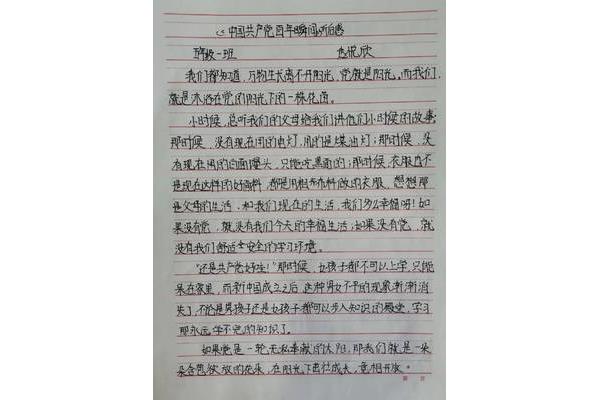 《中国共产党百年瞬间》听后感
班级一班
我们都知道，万物生长离不开阳光，党就是阳光，而我们，
就是沐浴在党的阳光下的一株花茵。
小时候，总听我们的父母给我们讲他们小时候的故事：
那时候，没有现在用的电灯，用的是煤油灯；那时候，没
有现在用的白面馒头，只能吃黑面的；那时候，衣服也不
是现在这样的好面料，都是用粗布布料做的衣服，想想那
是父母的生活，和我们现在的生活，我们多么幸福呀！如
果没有党，就没有我们今天的幸福生活；如果没有党，就
没有我们舒适安全的学习环境。
“还是共产党好哇！”那时候，女孩子都不可以上学，只能
呆在家里，而新中国成立之后，这种男女不平的现象渐渐消
失了，不论是男孩子还是女孩子都可以步入知识的殿堂，学习
那永远学不完的知识了。
如果党是一轮无私奉献的太阳，那我们就是一朵
朵含苞欲放的花朵，在阳光下茁壮成长，竞相开放。